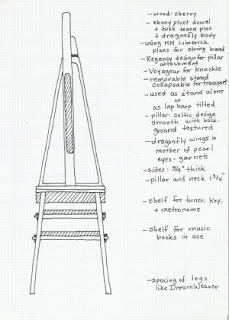 - wood: cherry
- ebony pivot dowel
+ tusk tenon pins
+ dragonfly body
- using MM Limerick
plans for string band
- Regency design for pillar
attachment
- Voyageur for knuckle
- removable stand
collapsable for transport
- used as stand alone
or
as lap harp tilted
- pillar: celtic design
smooth with back-
ground textured
- dragonfly wings in
mother of pearl
eyes - garnets
- sides: 3/8" thick
- pillar and neck 1 3/4"
- shelf for tuner, key,
+ metronome
- shelf for music
books in use
- spacing of legs
like DreamWeaver